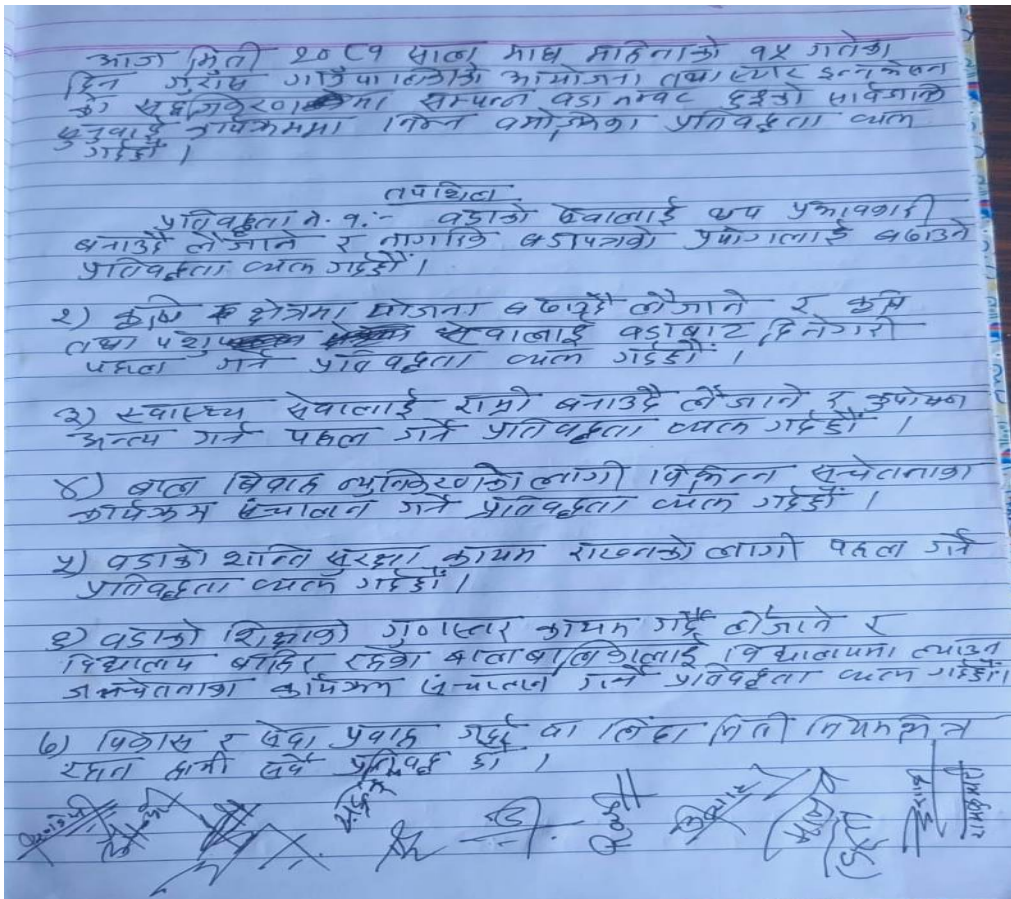 आज मिती २०८१ साल माघ महिनाको १५ गतेका
दिन गुराँस गाउँपालिकाको आयोजना तथा
को सहजिकरणमा सम्पन्न वडा नम्बर को सार्वजनिक
सुनुवाई कार्यक्रममा निम्न बमोजिमका प्रतिवद्धता व्यक्त
गर्दछौं ।
तपशिल
प्रतिवद्धता नं. १:- वडाको सेवालाई थप प्रभावकारी
बनाउदै लैजाने र नागरिक वडापत्रको प्रयोगलाई बढाउने
प्रतिवद्धता व्यक्त गर्दछौं ।
२) कृषि क्षेत्रमा योजना बढाउदै लैजाने र कृषि
तथा पशु सेवालाई वडाबाट दिनेगरी
पहल गर्ने प्रतिवद्धता व्यक्त गर्दछौं ।
३) स्वास्थ्य सेवालाई राम्रो बनाउदै लैजाने र कुपोषण
अन्त्य गर्न पहल गर्ने प्रतिवद्धता व्यक्त गर्दछौं ।
४) बाल बिवाह न्युनिकरणको लागी विभिन्न सचेतनाका
कार्यक्रम संचालन गर्ने प्रतिवद्धता व्यक्त गर्दछौं ।
५) वडाको शान्ति सुरक्षा कायम राख्नको लागी पहल गर्ने
प्रतिवद्धता व्यक्त गर्दछौं ।
६) वडाको शिक्षाको गुणस्तर कायम गर्दै लैजाने र
विद्यालय बाहिर रहेका बालबालिकालाई विद्यालयमा ल्याउन
जनचेतनाका कार्यक्रम संचालन गर्ने प्रतिवद्धता व्यक्त गर्दछौं।
७) विकास र सेवा प्रवाह गर्दा वा लिंदा मिती नियमभित्र
रहन हामी सबै प्रतिवद्ध छौं ।